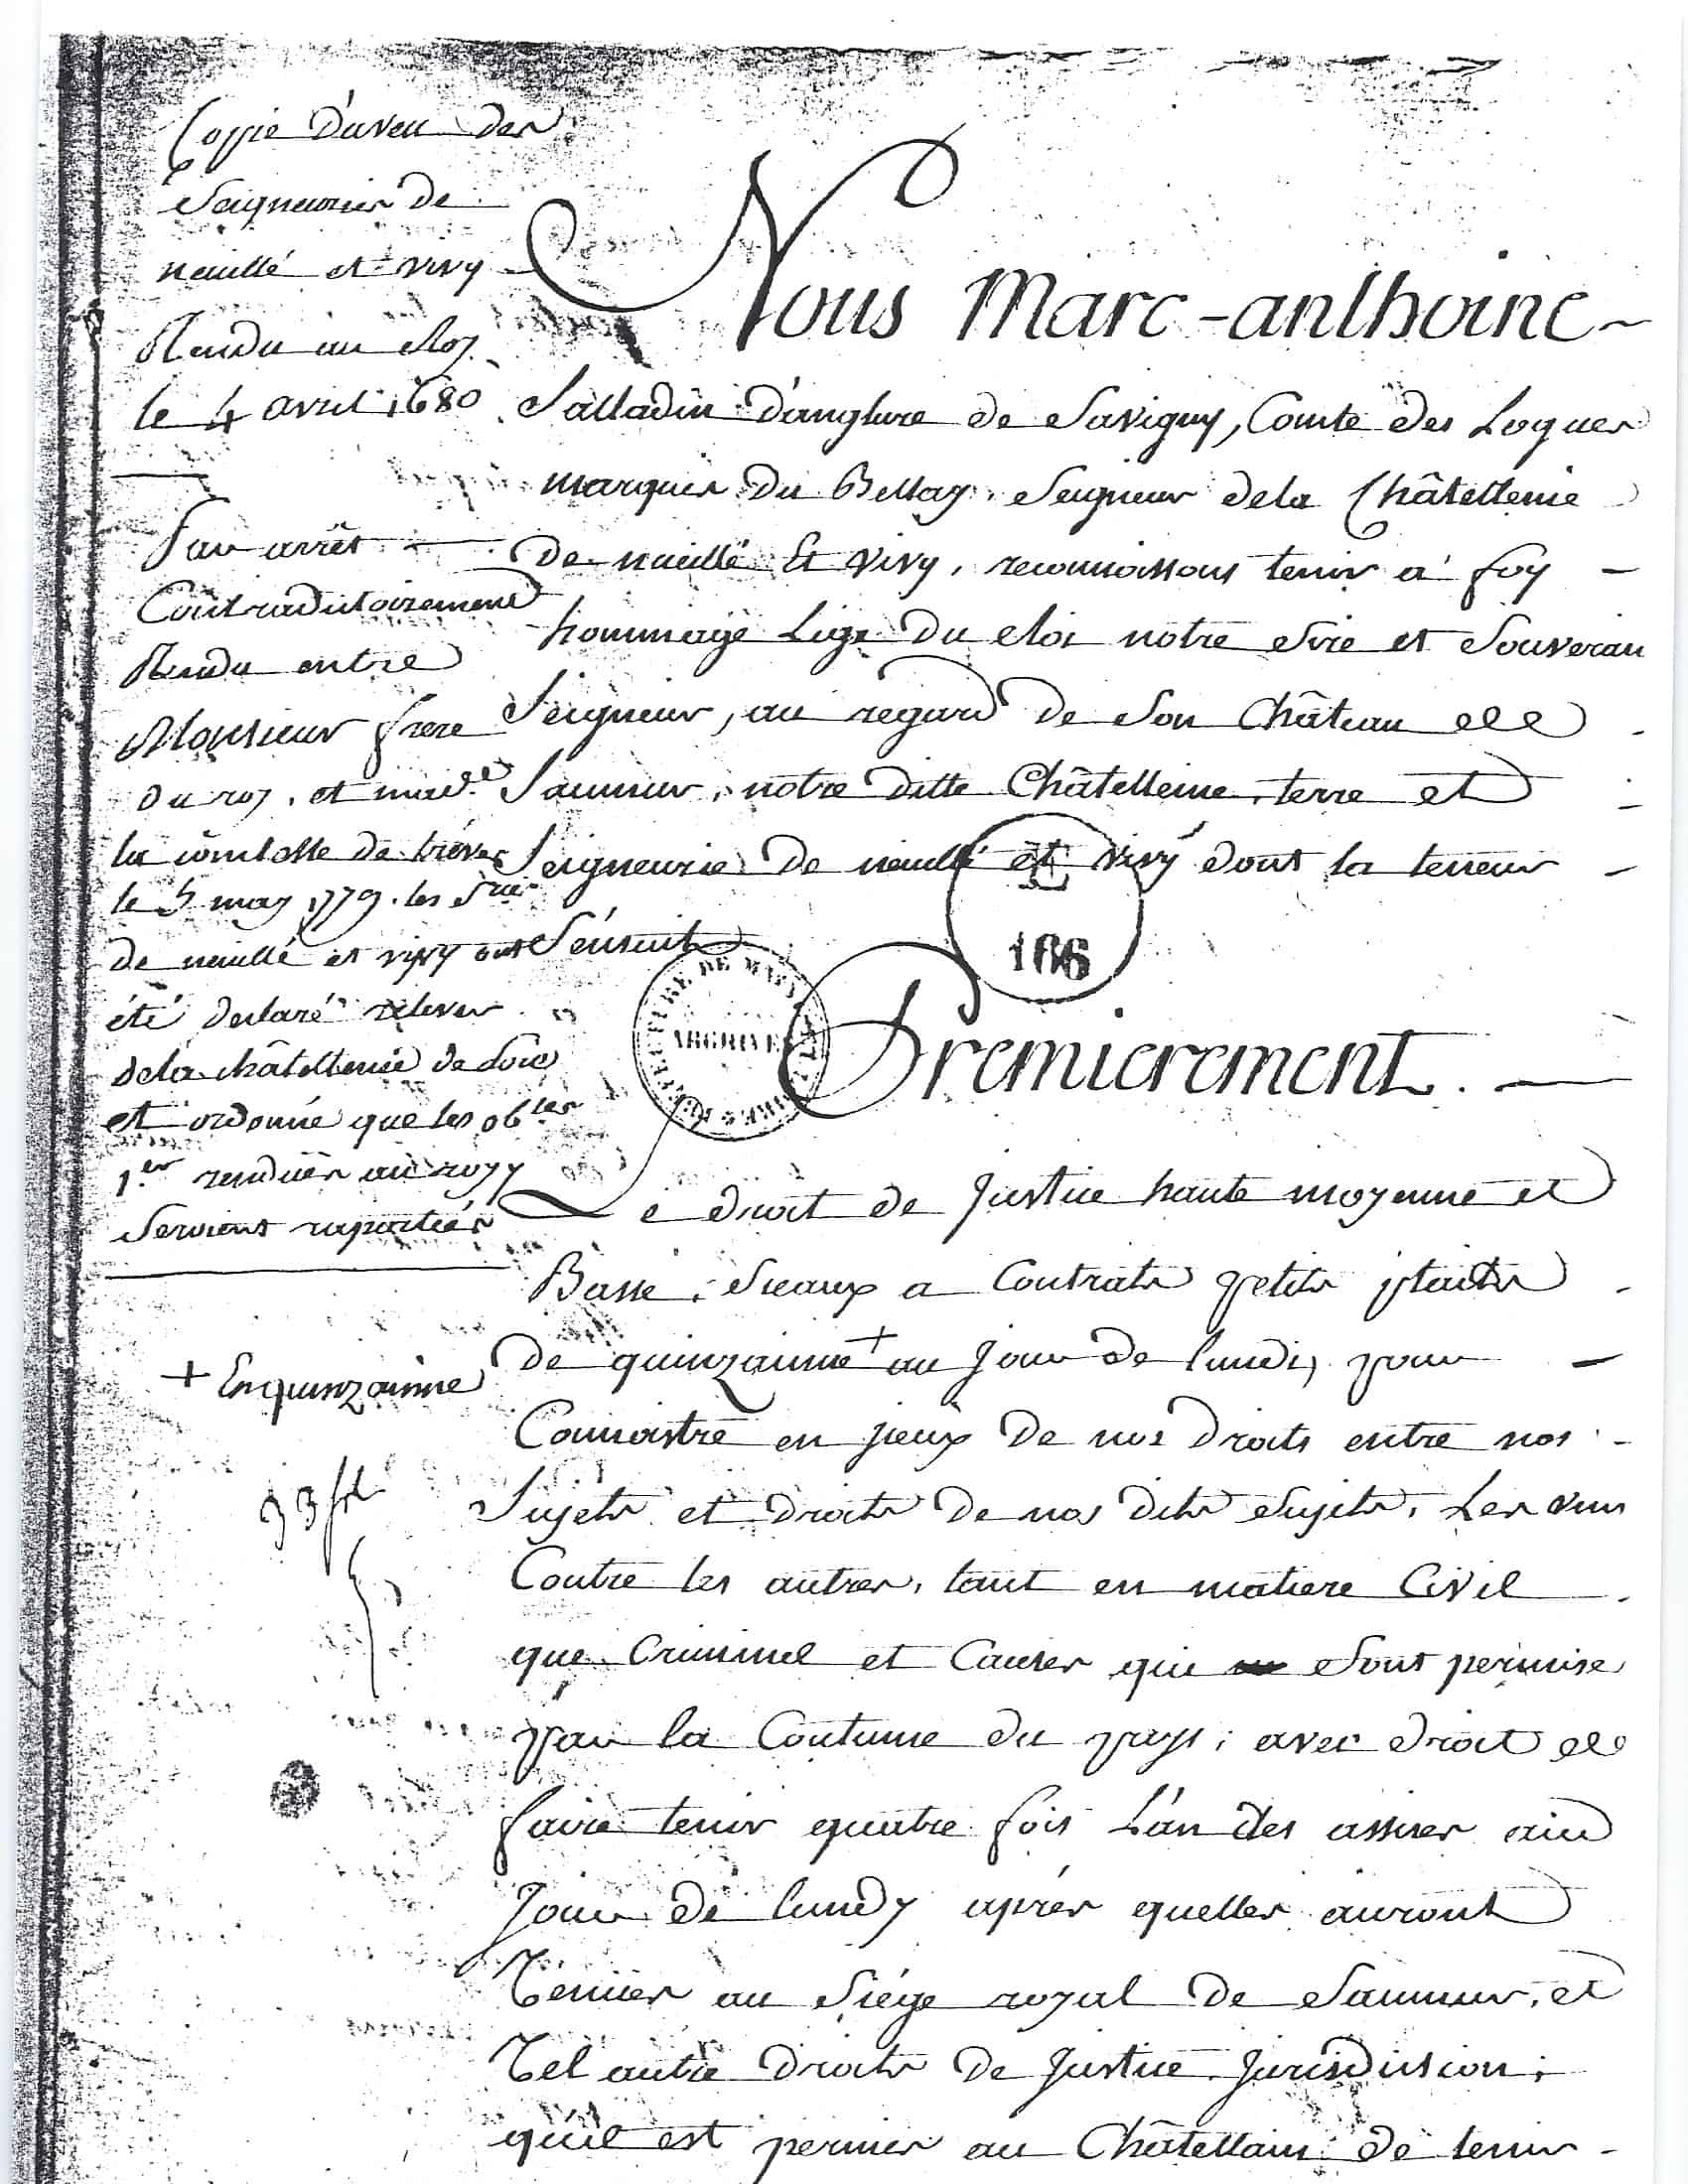 Coppie D'aveu des
Seigneuries de
neuillé et vivy
Rendu au Roy
le 4 avril 1680
Par arrêt
Contradictoirement
Rendu entre
Monsieur frere
du roy, et mad.e
la comtesse de trèves
le 5 may 1779. les S.ries
de neuillé et vivy ont
été declaré relever
dela châtellenie de
et ordonné que les ob.ces
1.er renduës au roy y
Seroient raportées
+ Enquinzainne
33
Nous Marc-anthoine
Salladin D'anglure de Savigny, Comte des Loques
marquis Du Bellay, Seigneur dela Châtellenie
De neuillé Et Vivy, reconnoissons tenir a foy
hommage Lige Du Roi notre Sire et Souverain
Seigneur, au regard De Son Château de
Saumur, notre Ditte Châtellenie, terre et
Seigneurie De neuillé et Vivy dont la teneur
S'ensuit
166
ARCHIVES
Premierement.
Le droit de Justice haute moyenne et
Basse, Sceaux a Contrats petits plaids
De quinzainne + au Jour De lundi, pour
Connoistre en jceux De nos Droits entre nos
Sujets et Droits De nos Dits Sujets, Les uns
Contre les autres, tant en matiere Civil
que Criminel et Causes que Sont permise
par la Coutume du pays; avec Droit de
faire tenir quatre fois L'an des assises aud
Jour De lundy après quelles auront
Tenües au Siége royal De Saumur, et
Tel autre Droits De Justice Jurisdiction;
qu'il est permis au Châtellain De tenir